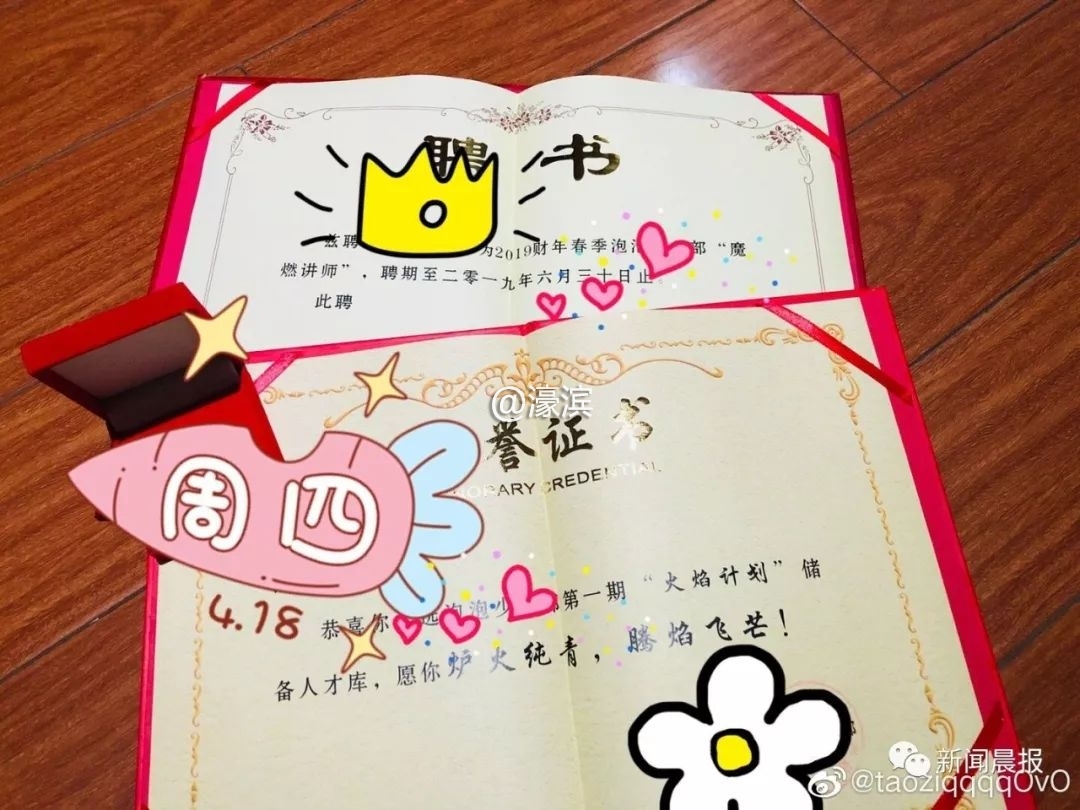 聘书
兹聘 为2019财年春季泡 部“魔
燃讲师”，聘期至二零一九年六月三十日止。
此聘
@濠滨
誉证书
ORARY CREDENTIAL
周四
4.18
恭喜你 选泡泡少 第一期“火焰计划”储
备人才库，愿你炉火纯青，腾焰飞芒！
新闻晨报
@taoziqqqqOvO